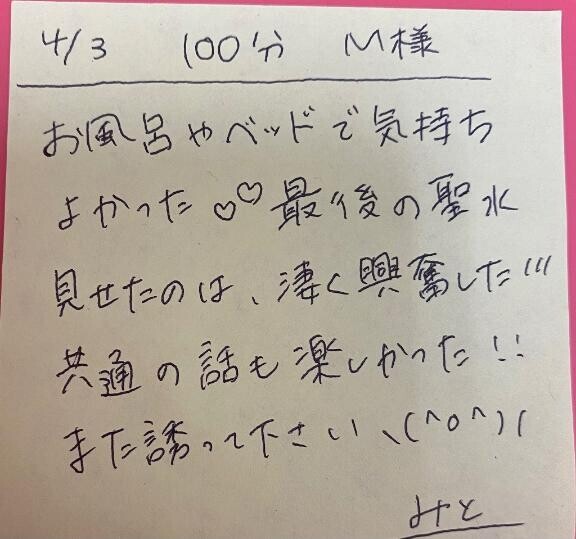 4/3 100分 M様
お風呂やベッドで気持ち
よかった♡♡最後の聖水
見せたのは、凄く興奮した!!!
共通の話も楽しかった!!
また誘って下さい\(^o^)/
みと